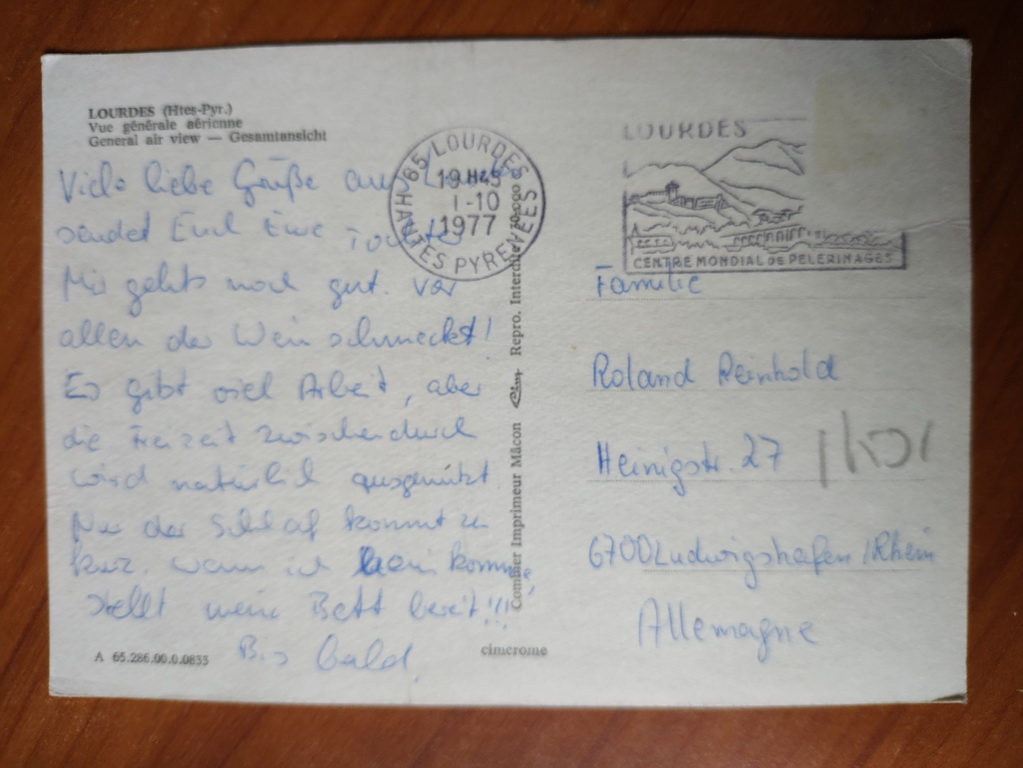 LOURDES (Htes-Pyr.)
Vue générale aérienne
General air view — Gesamtansicht
Viele liebe Grüße aus Lourdes
sendet Euch Eure Tochter
Mir gehts noch gut. Vor
allen der Wein schmeckt!
Es gibt viel Arbeit, aber
die Freizeit zwischendurch
wird natürlich ausgenützt
Nur der Schlaf kommt zu
kurz. Wenn ich heim komme,
stellt mein Bett bereit!!!
Bis bald
A 65.286.00.0.0833
65 LOURDES
19H45
1-10
1977
HAUTES PYRENEES
Combier Imprimeur Mâcon Cim Repro. Interdite
cimcrome
LOURDES
CENTRE MONDIAL DE PELERINAGES
Familie
Roland Reinhold
Heinigstr. 27
6700 Ludwigshafen/Rhein
Allemagne